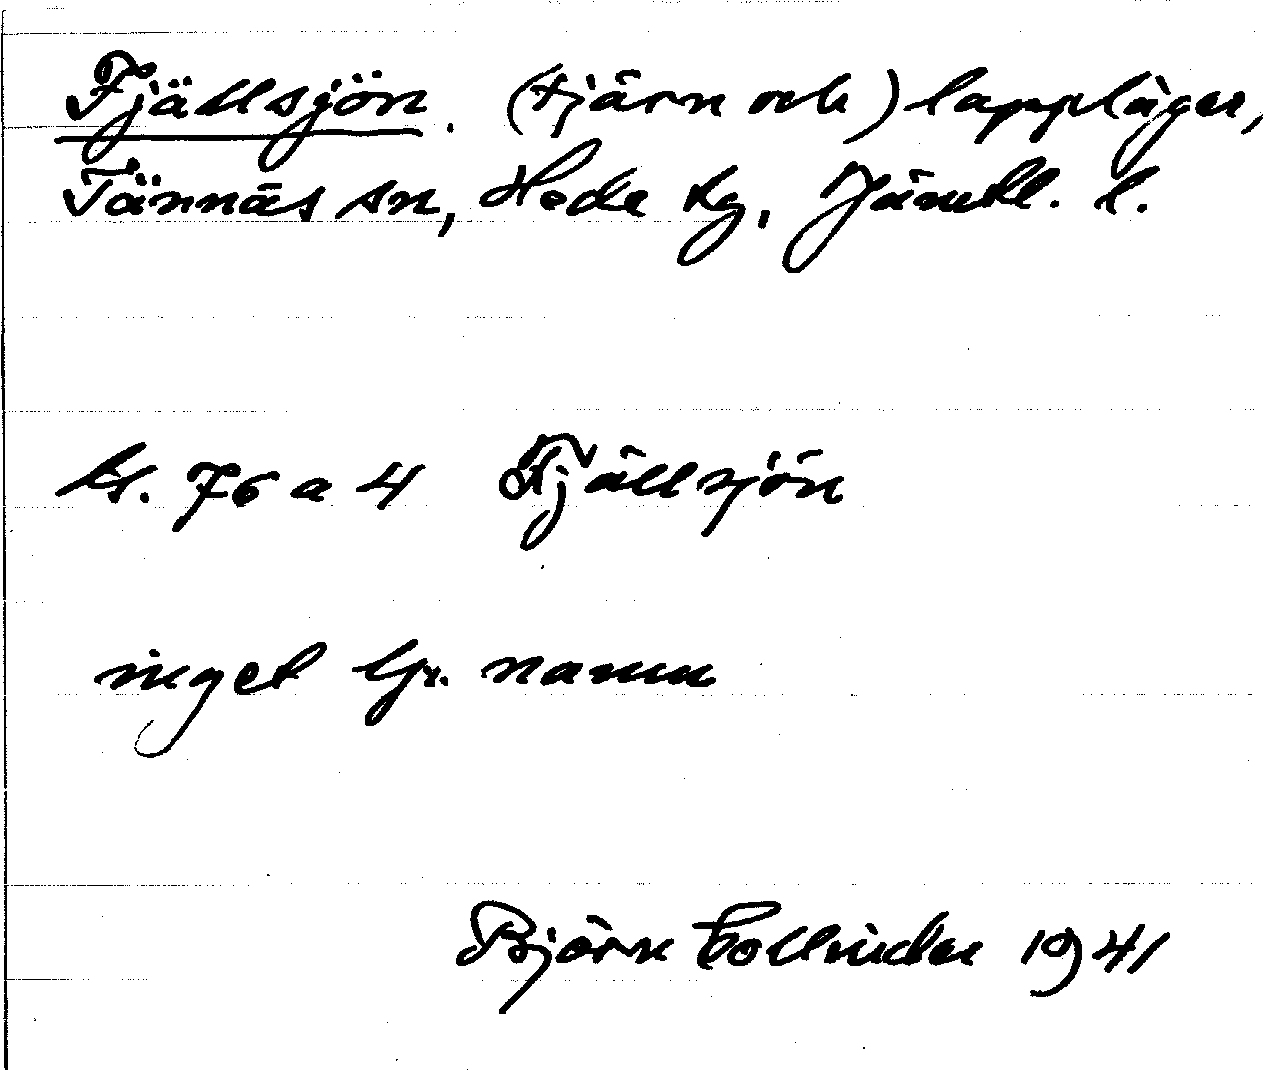 Fjällsjön. (tjärn och) lappläger,
Tännäs sn, Hede tg, Jämtl. l.
k. 76 a 4 Fjällsjön
inget lp. namn
Björn Collinder 1941